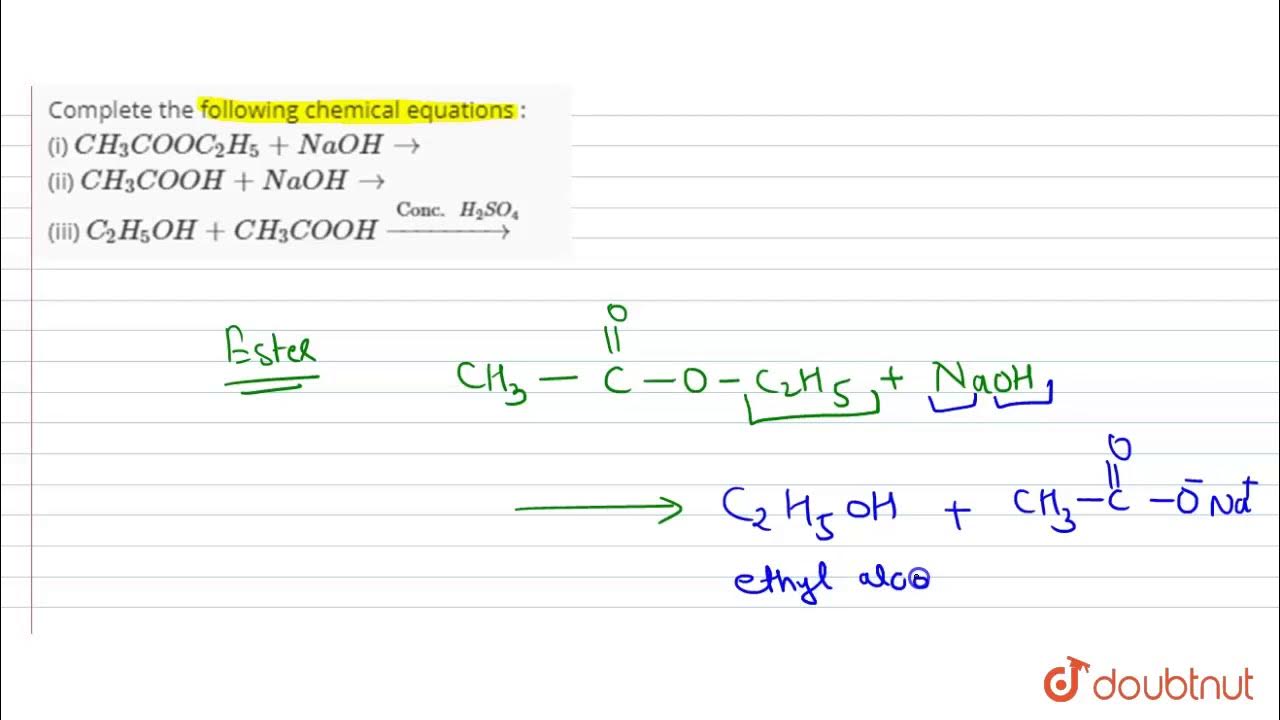 Complete the following chemical equations :
(i) CH₃COOC₂H₅ + NaOH →
(ii) CH₃COOH + NaOH →
Conc. H₂SO₄
(iii) C₂H₅OH + CH₃COOH ⟶
Ester
O
||
CH₃ — C — O — C₂H₅ + NaOH
O
||
⟶ C₂H₅OH + CH₃ — C — O⁻Na⁺
ethyl alco
doubtnut